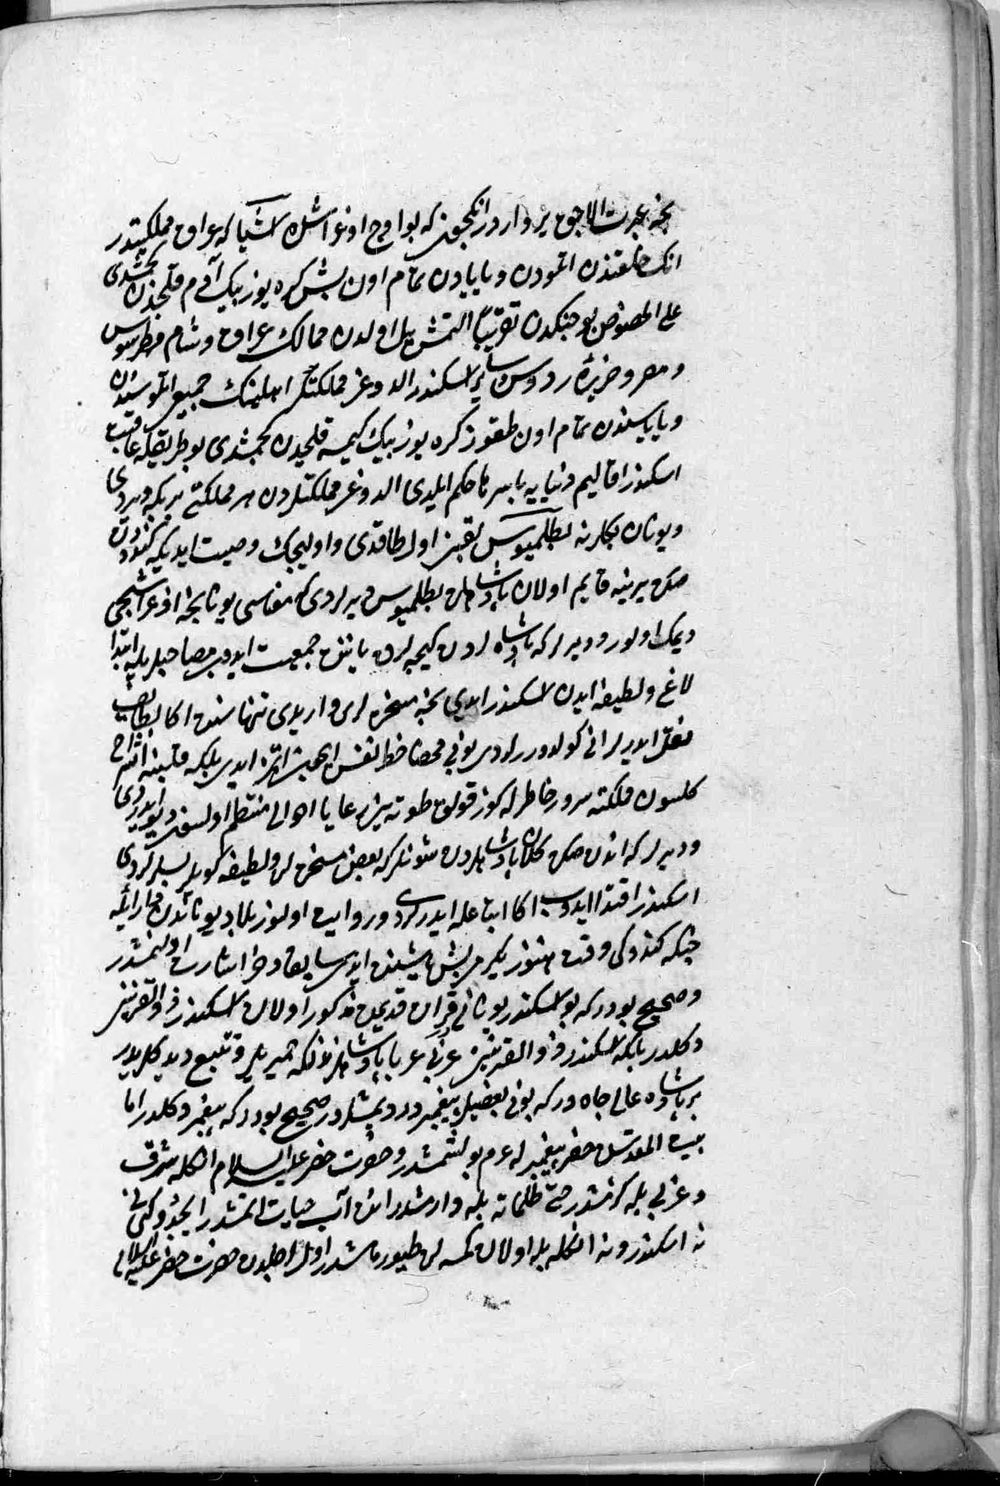 نجه عبرت الاجق یر واردر انکجون که بو اوج اونو اشلن اسیا که عراق مملکتیدر
انک خلقندن اتمودن و بابادن تمام اون بش کره یوز بیک آدم قلجدن کجشدی
علی الخصوص بو جنکدن تقریباً التمش ییل اولدن ممالک عراق و شام و طرسوس
و مصر و جزیرهٔ ردوس سایر اسکندر الدوغی مملکتلر اهلینک جمیع اتموسندن
و باباسندن تمام اون طقوز کره یوز بیک کیمسه قلجدن کجشدی بو طریقله عاقبت
اسکندر اقالیم دنیایه باسرها حکم ایلدی الدوغی مملکتلردن هر مملکتی بر بکه ویردی
و یونان بکلرنه بطلمیوس لقبنی اول طاقدی و اولیجک وصیت ایدیکه کندودن
صکره یرینه قایم اولان پادشاهلره بطلمیوس دیرلردی معناسی یونانجه اوغراشجی
دیمک اولور و دیرلر که پادشاهلردن کیجه لرده یاننه جمعیت ایدوب مصاحبلریله ابتدا
لاغ و لطیفه ایدن اسکندر ایدی نجه مسخره لری وار ایدی تنها سنده اکا لطایف
نقل ایدرلر انی کولدوررلردی بونی محضا حظ نفس ایجون اتمز ایدی بلکه قلبینه انشراح
کلسون ملکته سرور خاطرله کوز قولق طوته یین رعایا احوالی منتظم اولسون دیو ایدردی
و دیرلر که اندن صکره کلان پادشاهلردن شونلر که بعض مسخره لری و لطیفه کویلر بسلرلردی
اسکندره اقتدا ایدوب اکا اتباعله ایدرلردی و روایت اولنور بلاد یوناندن دارا ایله
جنکه کندوکی وقت هنوز یکرمی بش یاشنده ایدی سابقا دخی اشارت اولنمشدر
و صحیح بودر که بو اسکندر یونانی قران قدیمده مذکور اولان اسکندر ذو القرنین
دکلدر بلکه اسکندر ذو القرنین عربی عرب پادشاهلرندن که حمیریلر و تبع دیدکلریدر
بر پادشاه عالی جاه درکه بونی بعضیلر پیغمبردر دیمشلر در صحیح بودر که پیغمبر دکلدر اما
بیت المقدسده حضر پیغمبرله عرم بولشمشدر و حضرت خضر علیه السلام انکله شرق
و غربی بله کزمشدر حتی ظلماته بله وارمشدر انده آب حیات ایتمشدر ایجدوکنی
نه اسکندر و نه انکله بله اولان کمسه لر طیورمامشدر اول اجلدن حضرت خضر علیه السلام